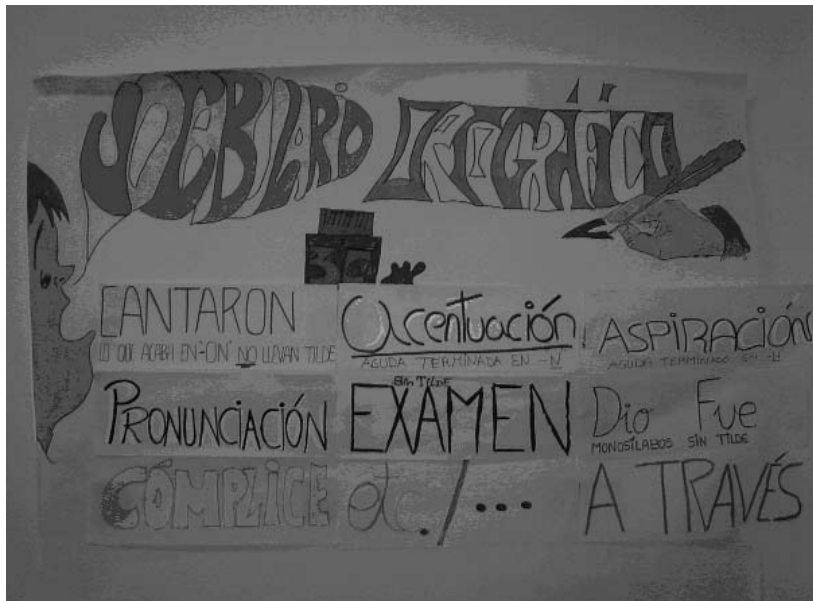 VOCABULARIO ORTOGRÁFICO
CANTARON
LO QUE ACABA EN-"ON" NO LLEVAN TILDE
Acentuación
AGUDA TERMINADA EN -N
ASPIRACIÓN
AGUDA TERMINADO EN -N
PRONUNCIACIÓN
SIN TILDE
EXAMEN
Dio Fue
MONOSÍLABOS SIN TILDE
CÓMPLICE
etc./...
A TRAVÉS